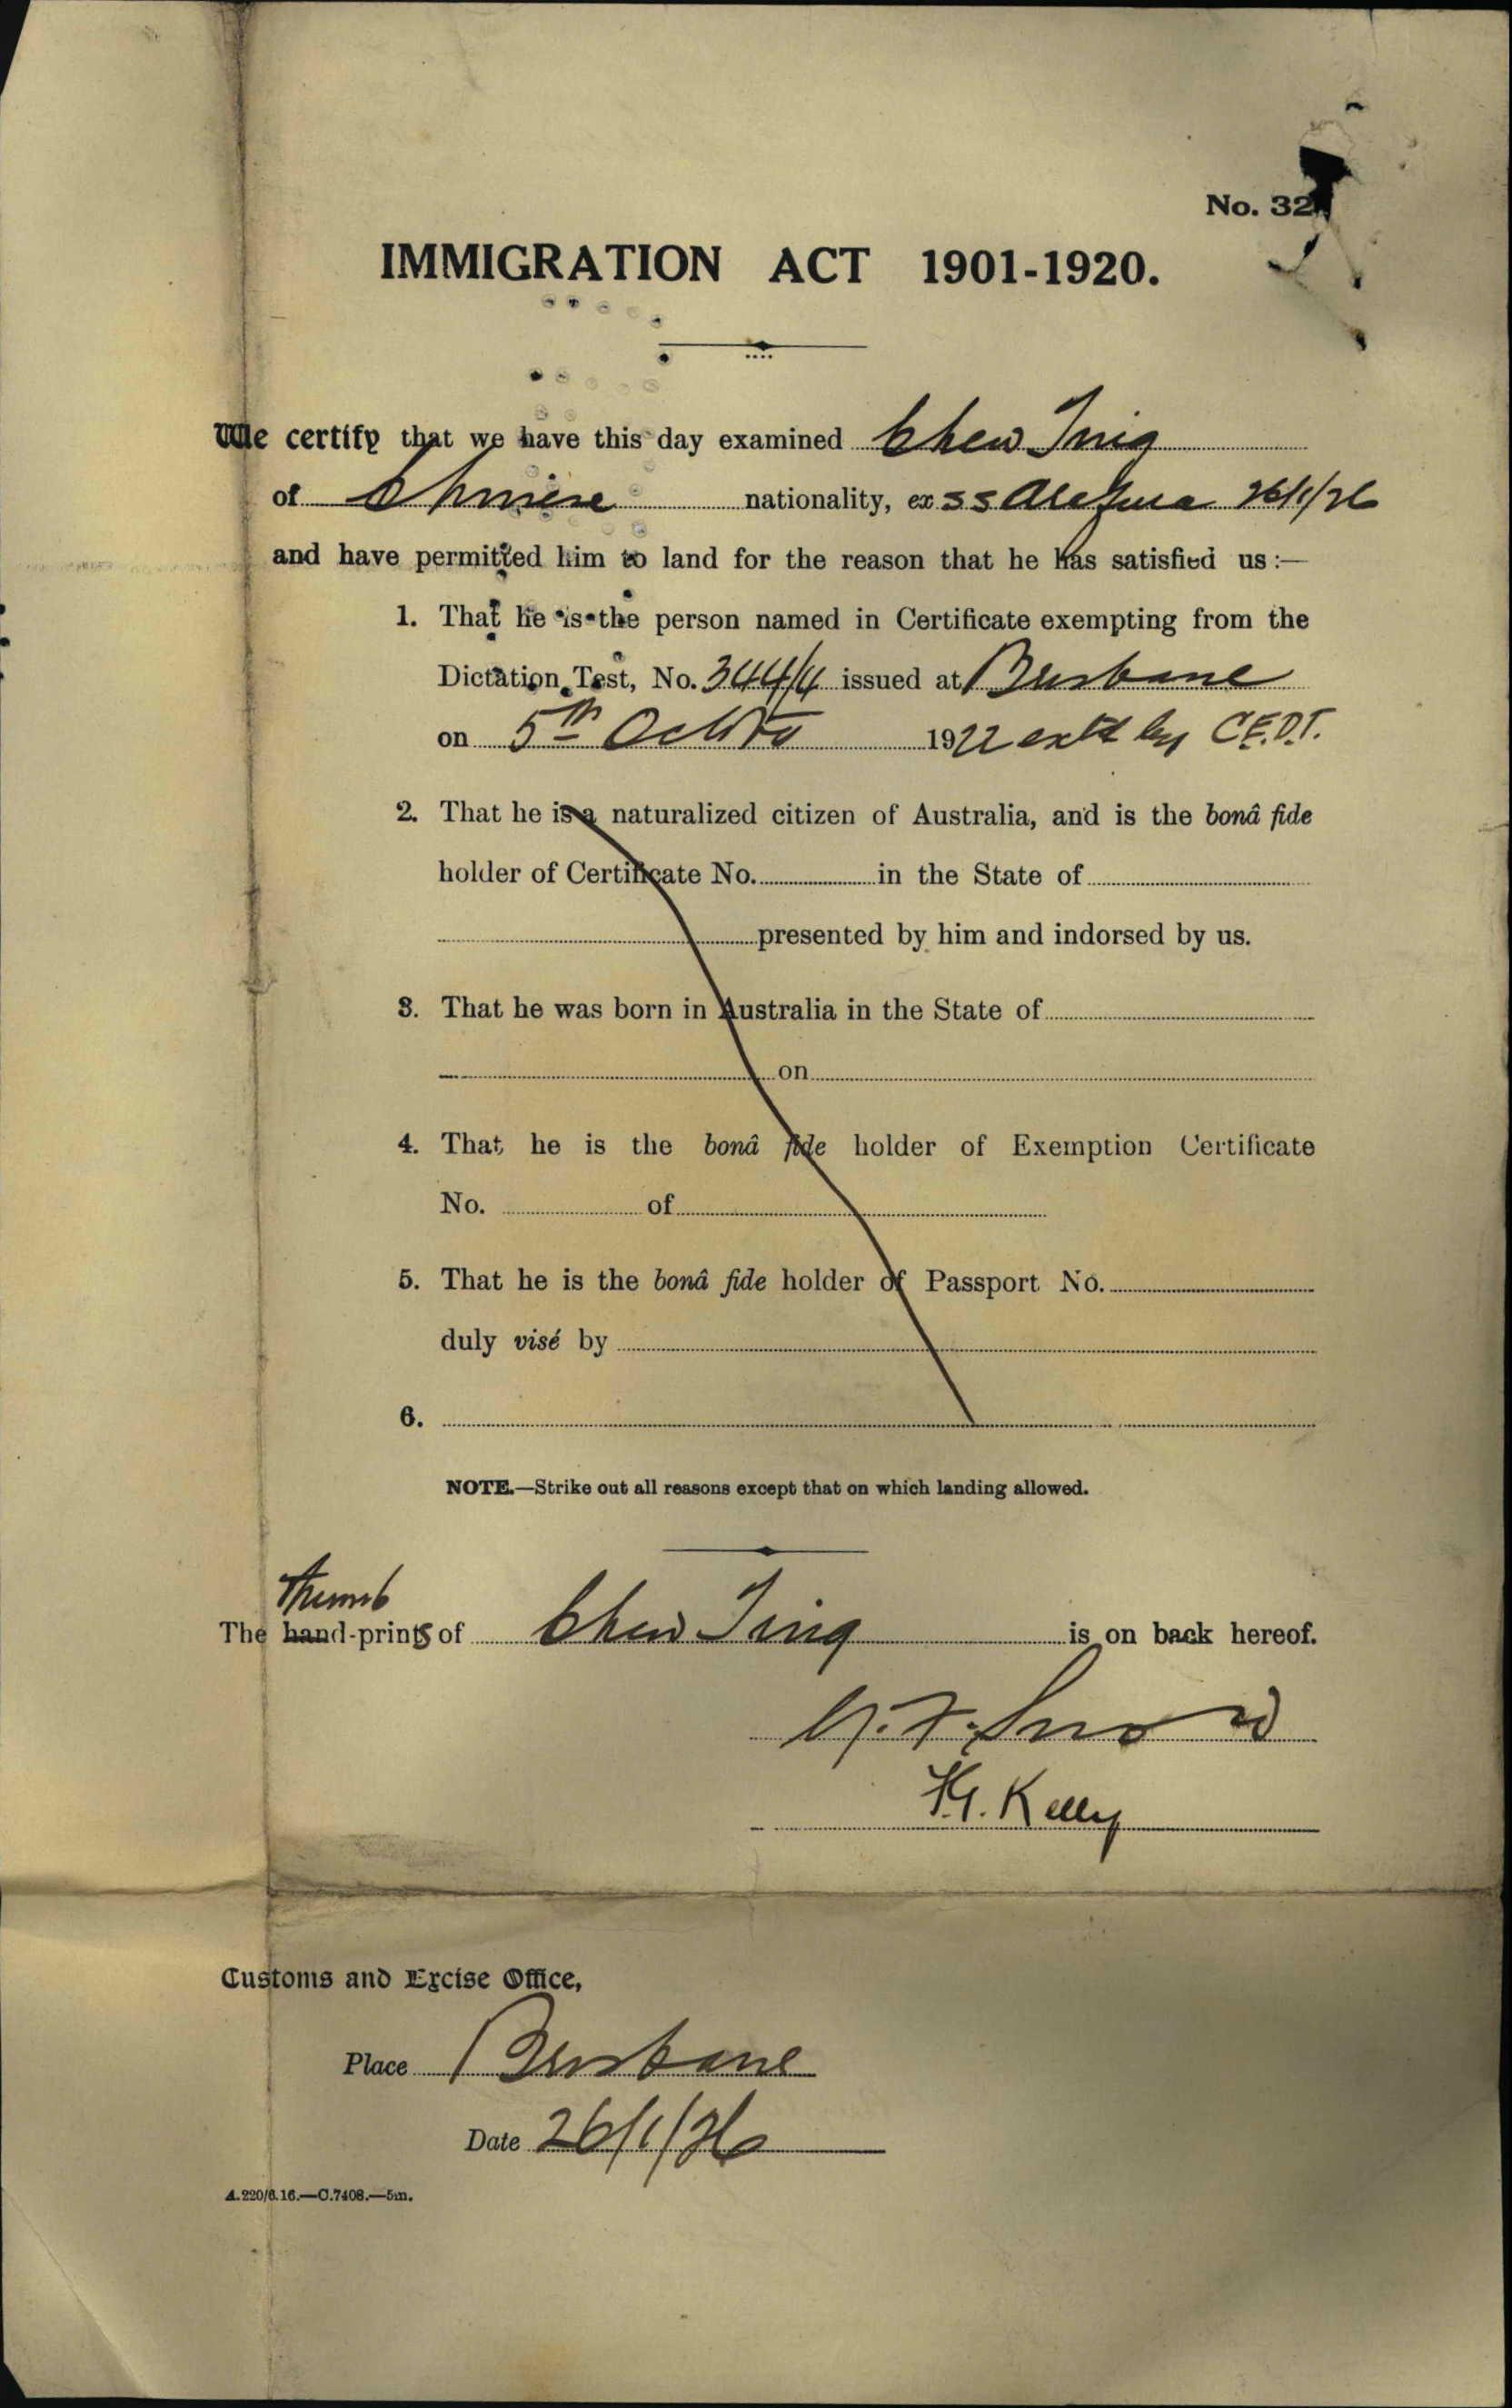 No. 32
IMMIGRATION ACT 1901-1920.
We certify that we have this day examined Chew Ting
of Chinese nationality, ex SS Arafura 26/1/26
and have permitted him to land for the reason that he has satisfied us:—
1. That he is the person named in Certificate exempting from the
Dictation Test, No. 344/4 issued at Brisbane
on 5th October 1922 by C.E.D.T.
2. That he is a naturalized citizen of Australia, and is the bonâ fide
holder of Certificate No. in the State of
presented by him and indorsed by us.
3. That he was born in Australia in the State of
on
4. That he is the bonâ fide holder of Exemption Certificate
No. of
5. That he is the bonâ fide holder of Passport No.
duly visé by
6.
NOTE.—Strike out all reasons except that on which landing allowed.
Thumb
The hand-prints of Chew Ting is on back hereof.
Kelly
Customs and Excise Office,
Place Brisbane
Date 26/1/26
A.220/6.16.—C.7408.—5m.